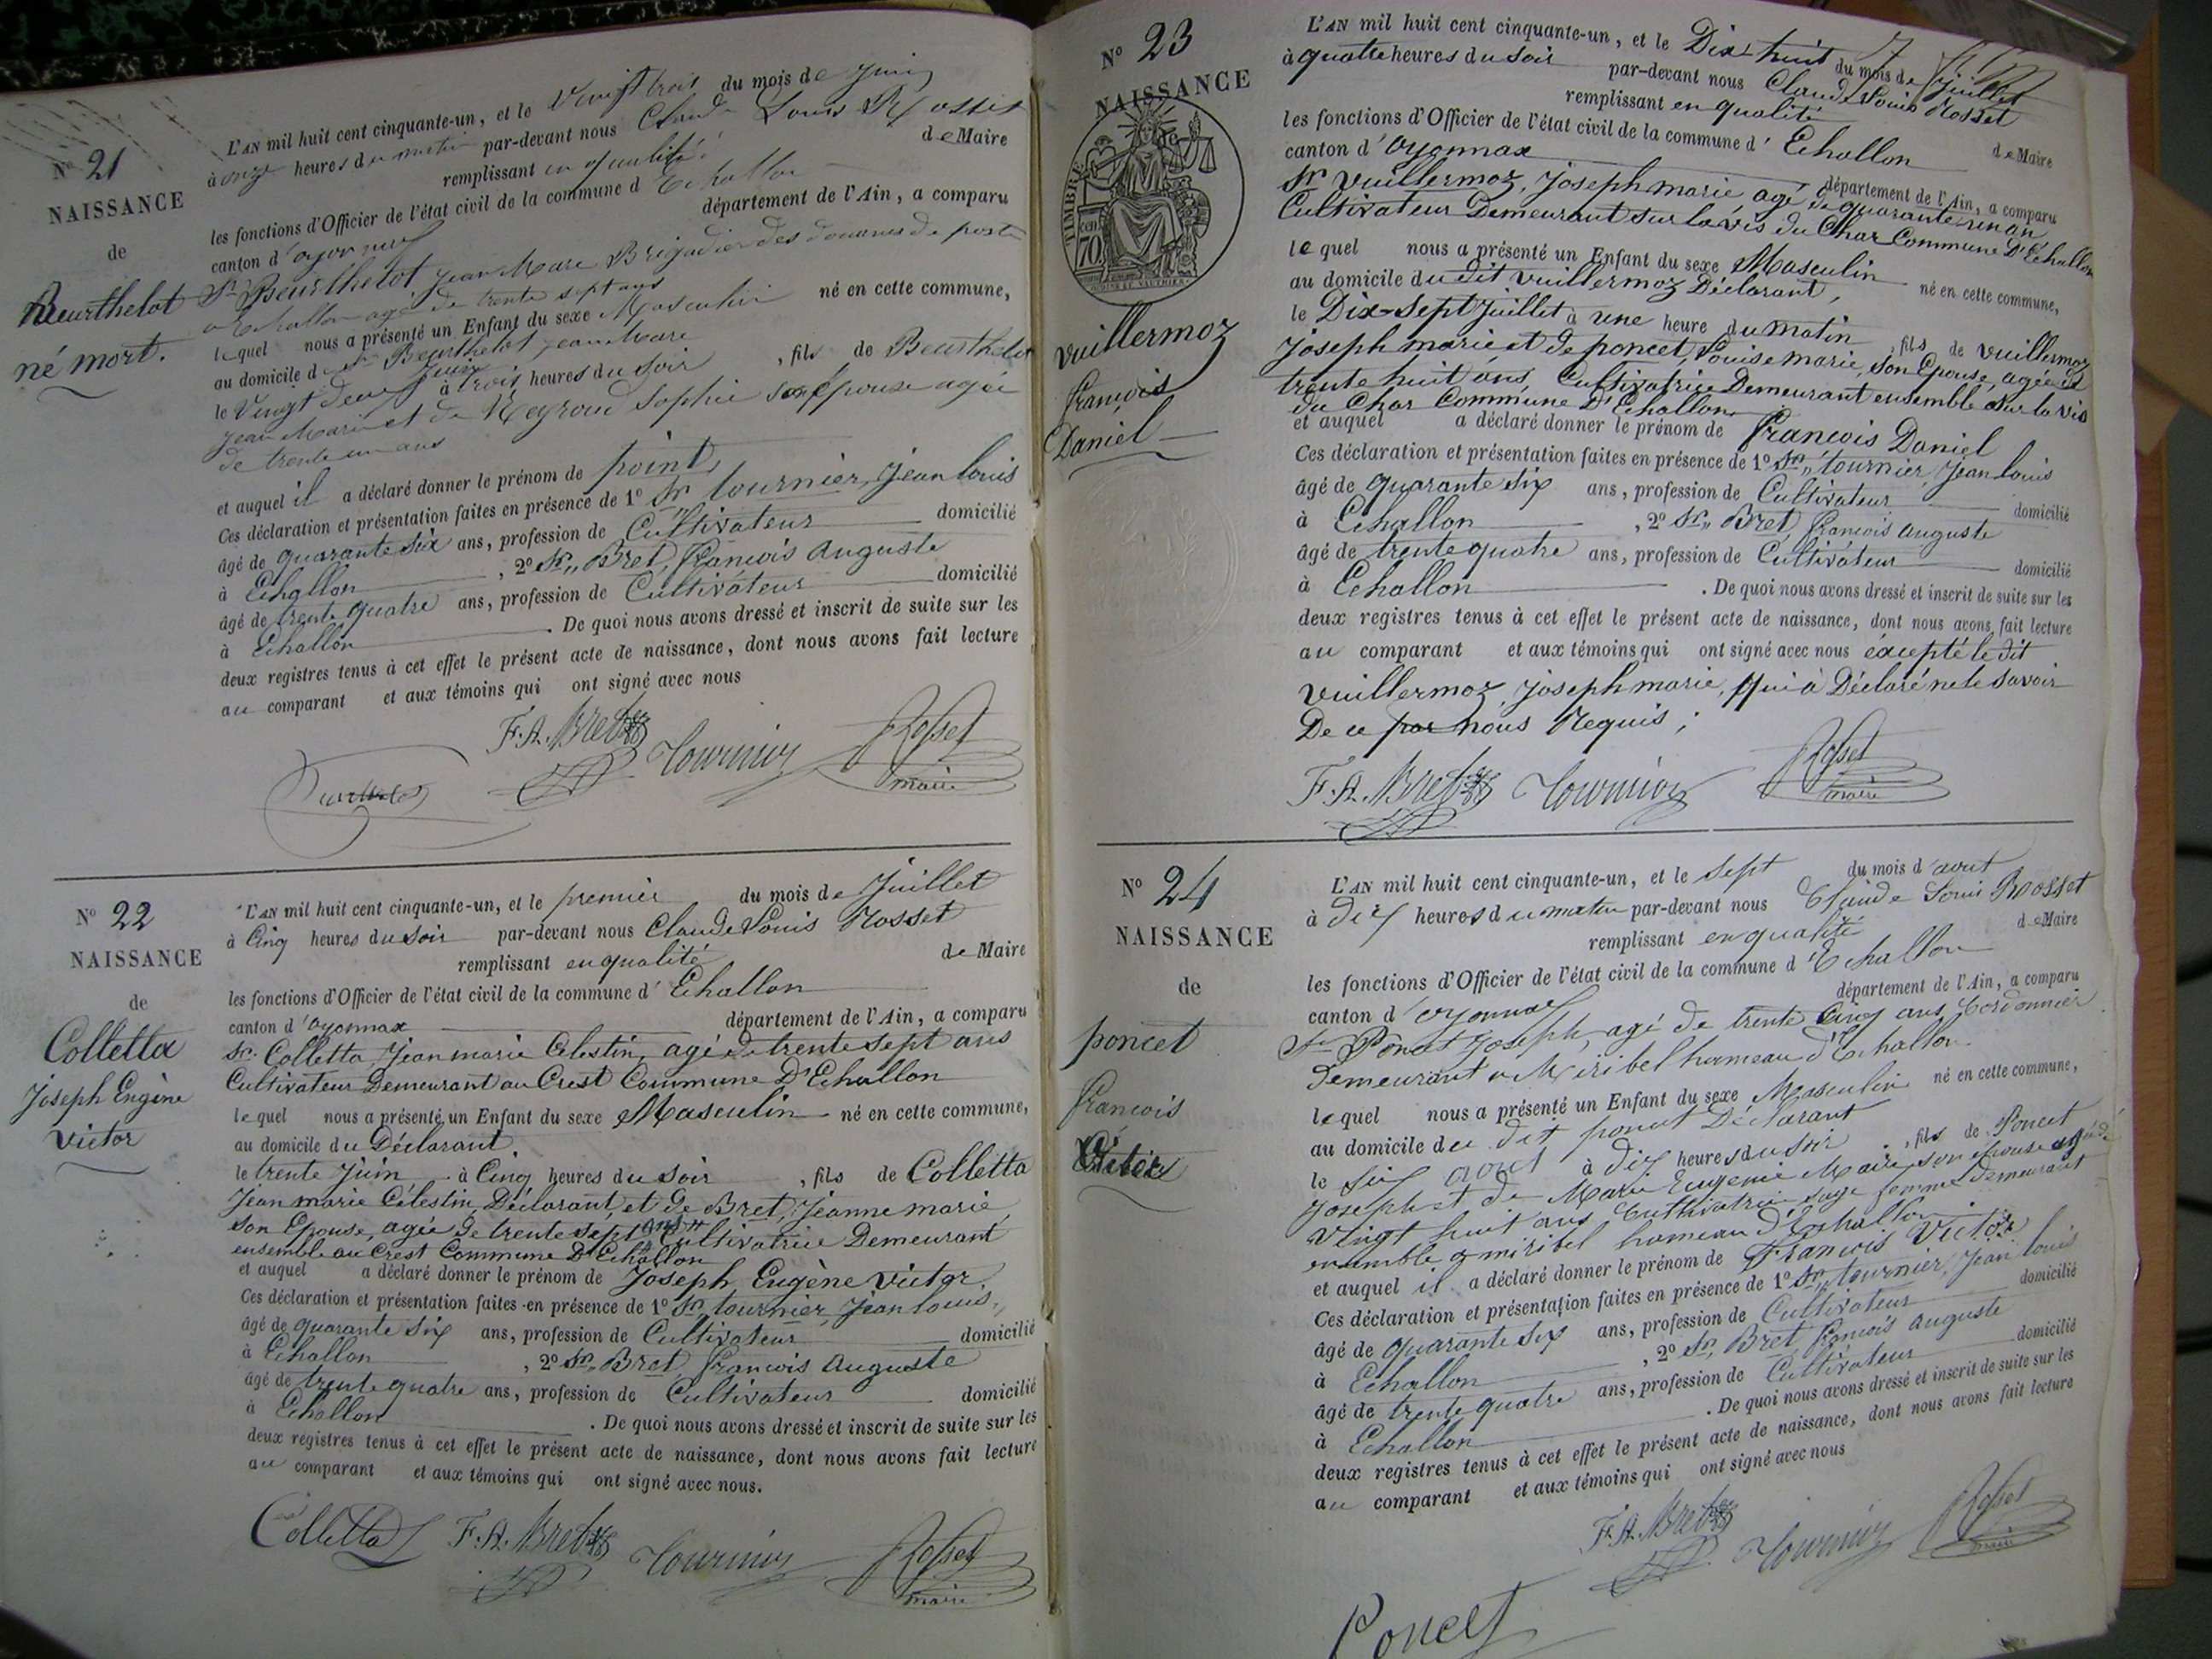 N° 21
NAISSANCE
de
Beurthelot
né mort.
L'AN mil huit cent cinquante-un, et le Vingt trois du mois de Juin
à onze heures du matin par-devant nous Claude Louis Rosset
remplissant en qualité de Maire
les fonctions d'Officier de l'état civil de la commune d Echallon
canton d'oyonnax département de l'Ain, a comparu
Sr Beurthelot Jean Marie Brigadier des douanes de poste
a Echallon agé de trente sept ans
lequel nous a présenté un Enfant du sexe Masculin né en cette commune,
au domicile du Sr Beurthelot Jean Marie
le Vingt deux Juin à trois heures du soir , fils de Beurthelot
Jean Marie et de Reyroud Sophie son épouse agée
de trente un ans
et auquel il a déclaré donner le prénom de point
Ces déclaration et présentation faites en présence de 1° Sr tournier, Jean louis
âgé de quarante six ans, profession de Cultivateur domicilié
à Echallon , 2° Sr Bret, françois auguste
âgé de trente quatre ans, profession de Cultivateur domicilié
à Echallon . De quoi nous avons dressé et inscrit de suite sur les
deux registres tenus à cet effet le présent acte de naissance, dont nous avons fait lecture
au comparant et aux témoins qui ont signé avec nous
F.A. Bret Tournier Rosset
maire
N° 22
NAISSANCE
de
Colletta
Joseph Eugène
victor
L'AN mil huit cent cinquante-un, et le premier du mois de Juillet
à Cinq heures du soir par-devant nous Claude Louis Rosset
remplissant en qualité de Maire
les fonctions d'Officier de l'état civil de la commune d' Echallon
canton d'oyonnax département de l'Ain, a comparu
Sr. Colletta Jean marie Célestin, agé de trente sept ans
Cultivateur Demeurant au Crest Commune D'Echallon
lequel nous a présenté un Enfant du sexe Masculin né en cette commune,
au domicile du Déclarant
le trente Juin à Cinq heures du soir , fils de Colletta
Jean marie Célestin, Déclarant, et de Bret, Jeanne marie
son Epouse, agée de trente sept ans Cultivatrice Demeurant
ensemble au Crest Commune D'Echallon
et auquel a déclaré donner le prénom de Joseph Eugène Victor.
Ces déclaration et présentation faites en présence de 1° Sr tournier, Jean louis
âgé de quarante six ans, profession de Cultivateur domicilié
à Echallon , 2° Sr Bret françois auguste
âgé de trente quatre ans, profession de Cultivateur domicilié
à Echallon . De quoi nous avons dressé et inscrit de suite sur les
deux registres tenus à cet effet le présent acte de naissance, dont nous avons fait lecture
au comparant et aux témoins qui ont signé avec nous.
Colletta F.A. Bret Tournier Rosset
maire
N° 23
NAISSANCE
TIMBRE
70 cen
vuillermoz
françois
Daniel
L'AN mil huit cent cinquante-un, et le Dix huit du mois de Juillet
à quatre heures du soir par-devant nous Claude Louis Rosset
remplissant en qualité de Maire
les fonctions d'Officier de l'état civil de la commune d' Echallon
canton d'oyonnax département de l'Ain, a comparu
Sr vuillermoz, Joseph marie, agé de quarante un an
Cultivateur Demeurant sur la vis du Char Commune D'Echallon
lequel nous a présenté un Enfant du sexe Masculin né en cette commune,
au domicile du dit vuillermoz Déclarant,
le Dix-Sept Juillet à une heure du matin , fils de vuillermoz
Joseph marie et de poncet, Louise marie, son Epouse, agée de
trente huit ans, Cultivatrice Demeurant ensemble sur la vis
du Char Commune D'Echallon
et auquel a déclaré donner le prénom de françois Daniel
Ces déclaration et présentation faites en présence de 1° Sr tournier, Jean louis
âgé de quarante six ans, profession de Cultivateur domicilié
à Echallon , 2° Sr Bret françois auguste
âgé de trente quatre ans, profession de Cultivateur domicilié
à Echallon . De quoi nous avons dressé et inscrit de suite sur les
deux registres tenus à cet effet le présent acte de naissance, dont nous avons fait lecture
au comparant et aux témoins qui ont signé avec nous éxcepté le dit
vuillermoz, Joseph marie, qui à Déclaré ne le savoir
De ce par nous Requis ;
F.A. Bret Tournier Rosset
maire
N° 24
NAISSANCE
de
poncet
françois
Victor
L'AN mil huit cent cinquante-un, et le sept du mois d'aout
à dix heures du matin par-devant nous Claude Louis Rosset
remplissant en qualité de Maire
les fonctions d'Officier de l'état civil de la commune d'Echallon
canton d'oyonnax département de l'Ain, a comparu
Sr Poncet Joseph, agé de trente cinq ans Cordonnier
demeurant a Miribel hameau d'Echallon
lequel nous a présenté un Enfant du sexe Masculin né en cette commune,
au domicile du dit poncet Déclarant
le six aout à dix heures du soir , fils de Poncet
Joseph et de Marie Eugenie Maire son épouse agée de
vingt huit ans Cultivatrice sage femme demeurant
ensemble a miribel hameau d'Echallon
et auquel il a déclaré donner le prénom de François Victor
Ces déclaration et présentation faites en présence de 1° Sr tournier, Jean louis
âgé de quarante six ans, profession de Cultivateur domicilié
à Echallon , 2° Sr Bret françois auguste
âgé de trente quatre ans, profession de Cultivateur domicilié
à Echallon . De quoi nous avons dressé et inscrit de suite sur les
deux registres tenus à cet effet le présent acte de naissance, dont nous avons fait lecture
au comparant et aux témoins qui ont signé avec nous
F.A. Bret Tournier Rosset
maire
Poncet